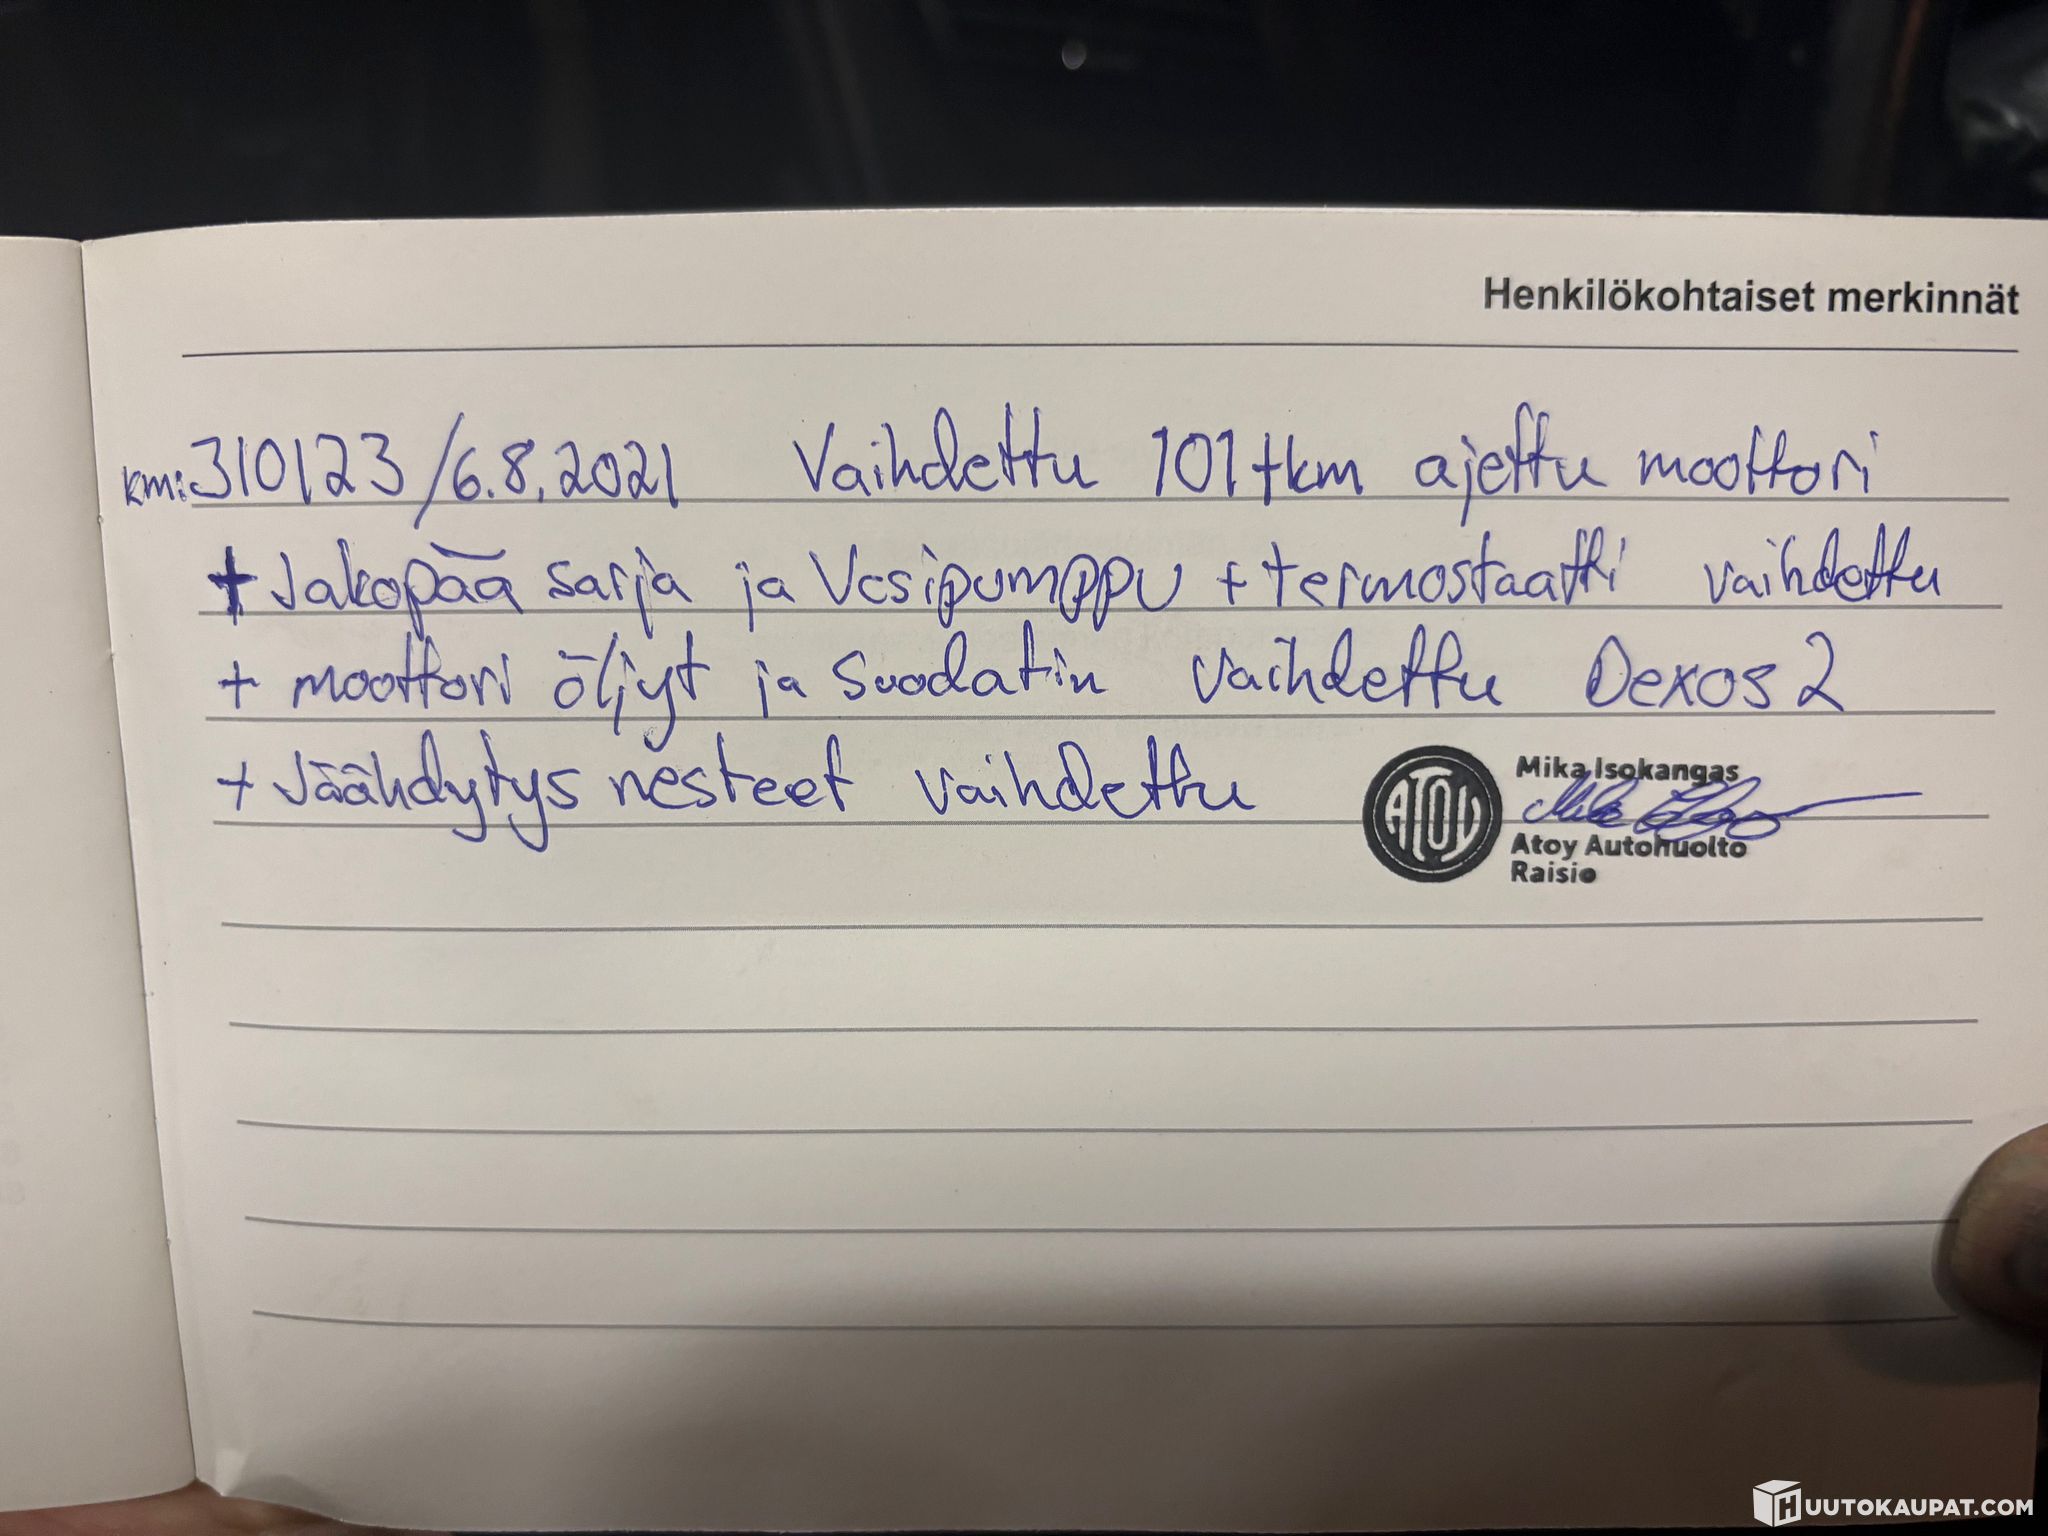 Henkilökohtaiset merkinnät
km: 310123 / 6.8.2021 Vaihdettu 101tkm ajettu moottori
+ Jakopää sarja ja Vesipumppu + termostaatti vaihdettu
+ moottori öljyt ja suodatin vaihdettu Dexos 2
+ Jäähdytys nesteet vaihdettu
ATOY
Mika Isokangas
Atoy Autohuolto
Raisio
HUUTOKAUPAT.COM